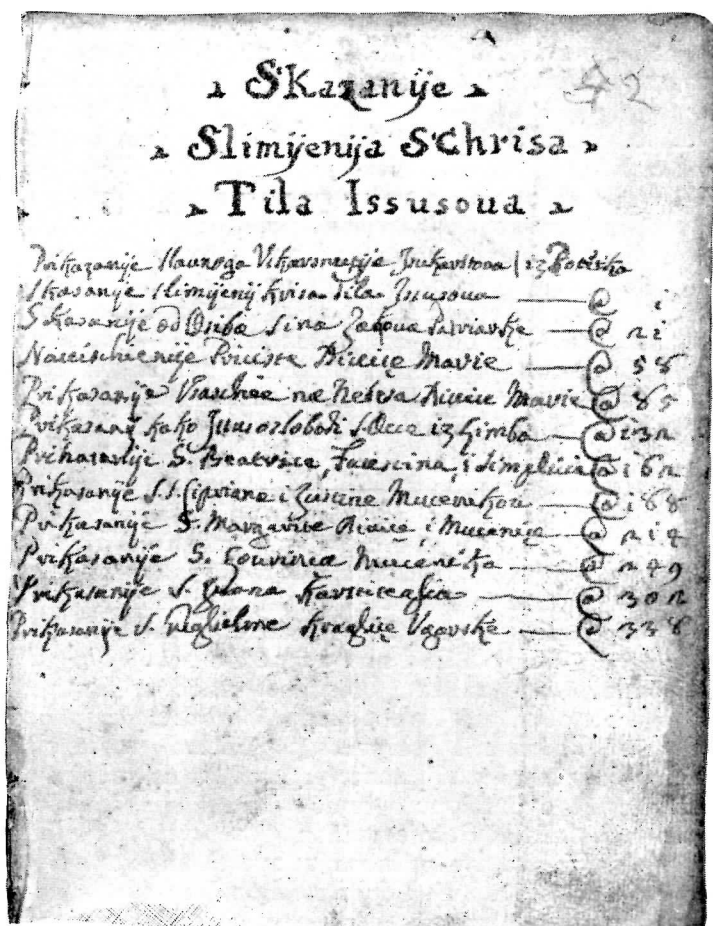 Skazanije 42
Slimijenija S Chrisa
Tila Issusoua
Prikazanije slaunoga Vskarsnutija Isukarstova | iz Potiska
Skasanije slimijenij krisa Tila Isusoua — @ i
Skasanije od Osiba Sina Jakoua Patriarke — @ 21
Nauischienije Priciste Diuice Marie — @ 58
Prikasanije Vsaschia na Nebesa Diuice Marie @ 85
Prikasanij kako Isus oslobodi s. Oce iz Limba — @ i32
Prikasanije S. Beatrice, Faustina, i Simplicia @ i62
Prikasanije S.S. Cipriana i Justine Mucenikou — @ i88
Prikasanije S. Margarite Diuice, i Mucenice — @ 214
Prikasanije S. Lourinca Mucenika — @ 249
Prikasanije S. Juana — @ 302
Prikasanije S. Guglielme Kraglice Vgarske — @ 338